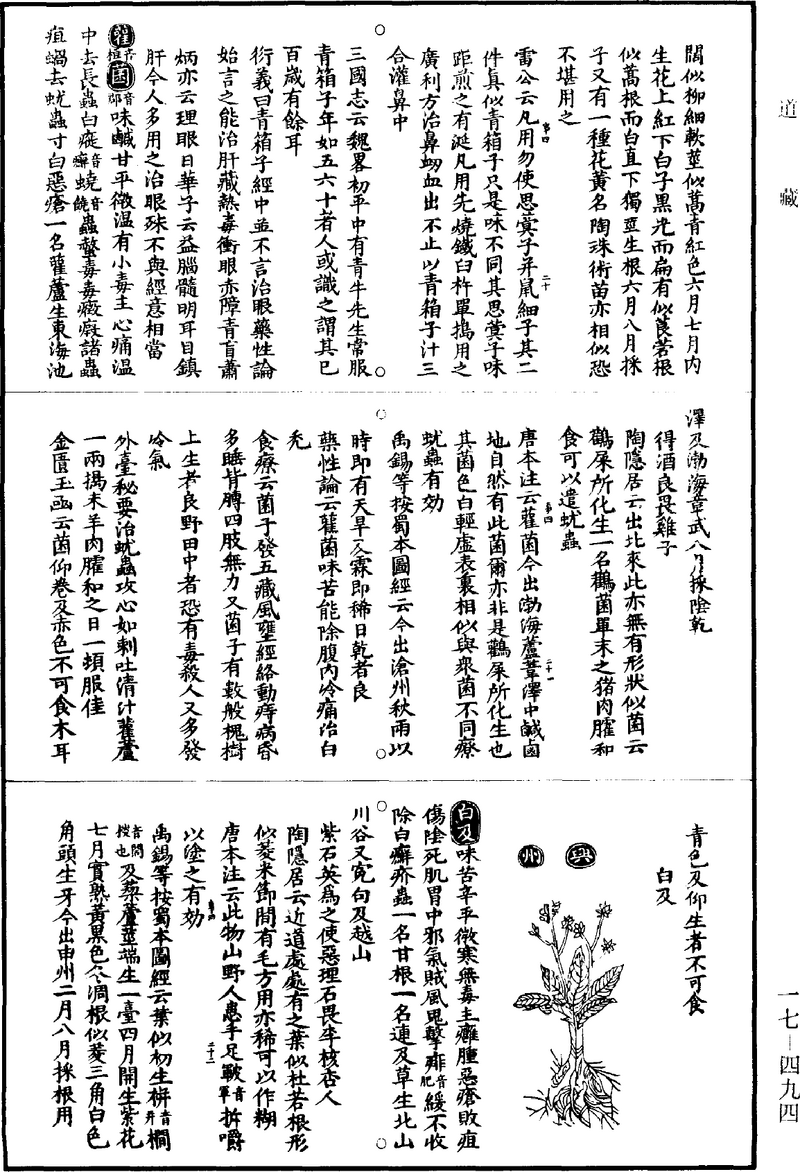 道藏
闊似柳細軟莖似蒿青紅色六月七月內
生花上紅下白子黑光而扁有似莨菪根
似蒿根而白直下獨莖生根六月八月採
子又有一種花黃名陶珠術苗亦相似恐
不堪用之
雷公云凡用勿使思蓂子并鼠細子其二
件真似青箱子只是味不同其思蓂子味
距煎之有涎凡用先燒鐵臼杵單搗用之
廣利方治鼻衂血出不止以青箱子汁三
合灌鼻中
三國志云魏畧初平中有青牛先生常服
青箱子年如五六十者人或識之謂其已
百歲有餘耳
衍義曰青箱子經中並不言治眼藥性論
始言之能治肝藏熱毒衝眼赤障青盲蕭
炳亦云理眼日華子云益腦髓明耳目鎮
肝今人多用之治眼殊不與經意相當
雚音桓菌音郡味鹹甘平微溫有小毒主心痛溫
中去長蟲白㿎音癬蟯音饒蟲螫毒毒癥瘕諸蟲
疽蝸去蚘蟲寸白惡瘡一名雚蘆生東海池
澤及渤海章武八月採陰乾
得酒良畏雞子
陶隱居云出北來此亦無有形狀似菌云
鸛屎所化生一名鸛菌單末之猪肉臛和
食可以遣蚘蟲
唐本注云雚菌今出渤海蘆葦澤中鹹鹵
地自然有此菌爾亦非是鸛屎所化生也
其菌色白輕虛表裏相似與衆菌不同療
蚘蟲有効
禹錫等按蜀本圖經云今出滄州秋雨以
時即有天旱及霖即稀日乾者良
藥性論云雚菌味苦能除腹內冷痛治白
禿
食療云菌子發五藏風壅經絡動痔病昏
多睡背膊四肢無力又菌子有數般槐樹
上生者良野田中者恐有毒殺人又多發
冷氣
外臺秘要治蚘蟲攻心如刺吐清汁雚蘆
一兩搗末羊肉臛和之日一頓服佳
金匱玉函云菌仰卷及赤色不可食木耳
青色及仰生者不可食
白及
興州
白及味苦辛平微寒無毒主癰腫惡瘡敗疽
傷陰死肌胃中邪氣賊風鬼擊痱音肥緩不收
除白癬疥蟲一名甘根一名連及草生北山
川谷又寃句及越山
紫石英為之使惡理石畏李核杏人
陶隱居云近道處處有之葉似杜若根形
似菱米節間有毛方用亦稀可以作糊
唐本注云此物山野人患手足皸音軍拆嚼
以塗之有効
禹錫等按蜀本圖經云葉似初生栟音并櫚
音閭椶也及藜蘆莖端生一臺四月開生紫花
七月實熟黃黑色冬凋根似菱三角白色
角頭生牙今出申州二月八月採根用
一七—四九四